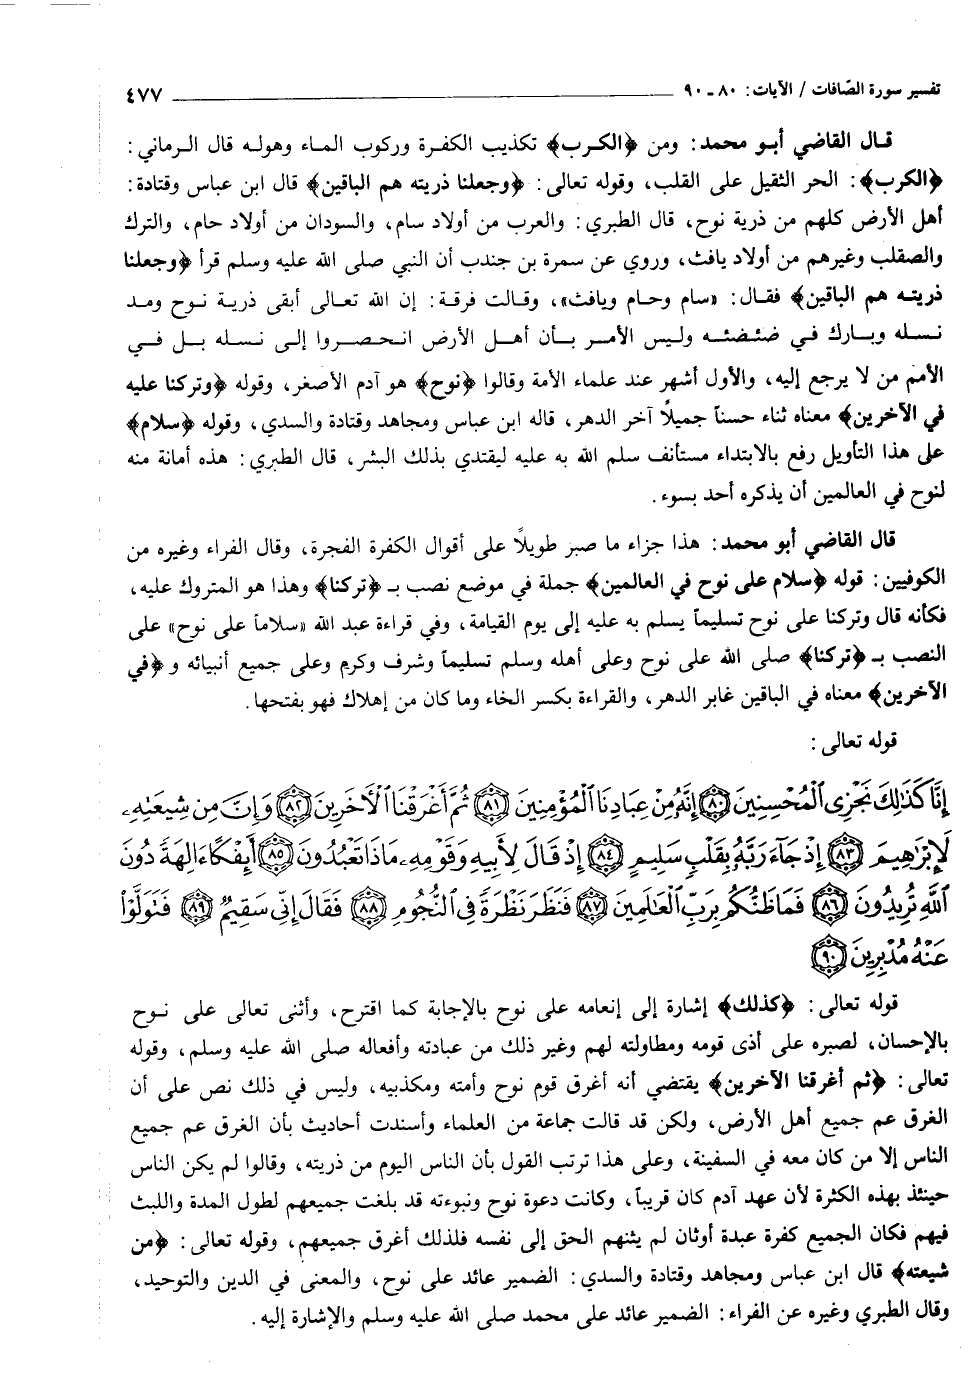 تفسير سورة الصّافات / الآيات: ٨٠ ـ ٩٠ ٤٧٧
قال القاضي أبو محمد: ومن ﴿الكرب﴾ تكذيب الكفرة وركوب الماء وهوله قال الرماني:
﴿الكرب﴾: الحر الثقيل على القلب، وقوله تعالى: ﴿وجعلنا ذريته هم الباقين﴾ قال ابن عباس وقتادة:
أهل الأرض كلهم من ذرية نوح، قال الطبري: والعرب من أولاد سام، والسودان من أولاد حام، والترك
والصقلب وغيرهم من أولاد يافث، وروي عن سمرة بن جندب أن النبي صلى الله عليه وسلم قرأ ﴿وجعلنا
ذريته هم الباقين﴾ فقال: «سام وحام ويافث»، وقالت فرقة: إن الله تعالى أبقى ذرية نوح ومد
نسله وبارك في ضئضئه وليس الأمر بأن أهل الأرض انحصروا إلى نسله بل في
الأمم من لا يرجع إليه، والأول أشهر عند علماء الأمة وقالوا ﴿نوح﴾ هو آدم الأصغر، وقوله ﴿وتركنا عليه
في الآخرين﴾ معناه ثناء حسناً جميلاً آخر الدهر، قاله ابن عباس ومجاهد وقتادة والسدي، وقوله ﴿سلام﴾
على هذا التأويل رفع بالابتداء مستأنف سلم الله به عليه ليقتدي بذلك البشر، قال الطبري: هذه أمانة منه
لنوح في العالمين أن يذكره أحد بسوء.
قال القاضي أبو محمد: هذا جزاء ما صبر طويلاً على أقوال الكفرة الفجرة، وقال الفراء وغيره من
الكوفيين: قوله ﴿سلام على نوح في العالمين﴾ جملة في موضع نصب بـ ﴿تركنا﴾ وهذا هو المتروك عليه،
فكأنه قال وتركنا على نوح تسليماً يسلم به عليه إلى يوم القيامة، وفي قراءة عبد الله «سلاماً على نوح» على
النصب بـ ﴿تركنا﴾ صلى الله على نوح وعلى أهله وسلم تسليماً وشرف وكرم وعلى جميع أنبيائه و ﴿في
الآخرين﴾ معناه في الباقين غابر الدهر، والقراءة بكسر الخاء وما كان من إهلاك فهو بفتحها.
قوله تعالى:
إِنَّا كَذَٰلِكَ نَجْزِى ٱلْمُحْسِنِينَ ﴿٨٠﴾ إِنَّهُۥ مِنْ عِبَادِنَا ٱلْمُؤْمِنِينَ ﴿٨١﴾ ثُمَّ أَغْرَقْنَا ٱلْأٓخَرِينَ ﴿٨٢﴾ وَإِنَّ مِن شِيعَتِهِۦ
لَإِبْرَٰهِيمَ ﴿٨٣﴾ إِذْ جَآءَ رَبَّهُۥ بِقَلْبٍ سَلِيمٍ ﴿٨٤﴾ إِذْ قَالَ لِأَبِيهِ وَقَوْمِهِۦ مَاذَا تَعْبُدُونَ ﴿٨٥﴾ أَئِفْكًا ءَالِهَةً دُونَ
ٱللَّهِ تُرِيدُونَ ﴿٨٦﴾ فَمَا ظَنُّكُم بِرَبِّ ٱلْعَٰلَمِينَ ﴿٨٧﴾ فَنَظَرَ نَظْرَةً فِى ٱلنُّجُومِ ﴿٨٨﴾ فَقَالَ إِنِّى سَقِيمٌ ﴿٨٩﴾ فَتَوَلَّوْا۟
عَنْهُ مُدْبِرِينَ ﴿٩٠﴾
قوله تعالى: ﴿كذلك﴾ إشارة إلى إنعامه على نوح بالإجابة كما اقترح، وأثنى تعالى على نوح
بالإحسان، لصبره على أذى قومه ومطاولته لهم وغير ذلك من عبادته وأفعاله صلى الله عليه وسلم، وقوله
تعالى: ﴿ثم أغرقنا الآخرين﴾ يقتضي أنه أغرق قوم نوح وأمته ومكذبيه، وليس في ذلك نص على أن
الغرق عم جميع أهل الأرض، ولكن قد قالت جماعة من العلماء وأسندت أحاديث بأن الغرق عم جميع
الناس إلا من كان معه في السفينة، وعلى هذا ترتب القول بأن الناس اليوم من ذريته، وقالوا لم يكن الناس
حينئذ بهذه الكثرة لأن عهد آدم كان قريباً، وكانت دعوة نوح ونبوءته قد بلغت جميعهم لطول المدة واللبث
فيهم فكان الجميع كفرة عبدة أوثان لم يثنهم الحق إلى نفسه فلذلك أغرق جميعهم، وقوله تعالى: ﴿من
شيعته﴾ قال ابن عباس ومجاهد وقتادة والسدي: الضمير عائد على نوح، والمعنى في الدين والتوحيد،
وقال الطبري وغيره عن الفراء: الضمير عائد على محمد صلى الله عليه وسلم والإشارة إليه.